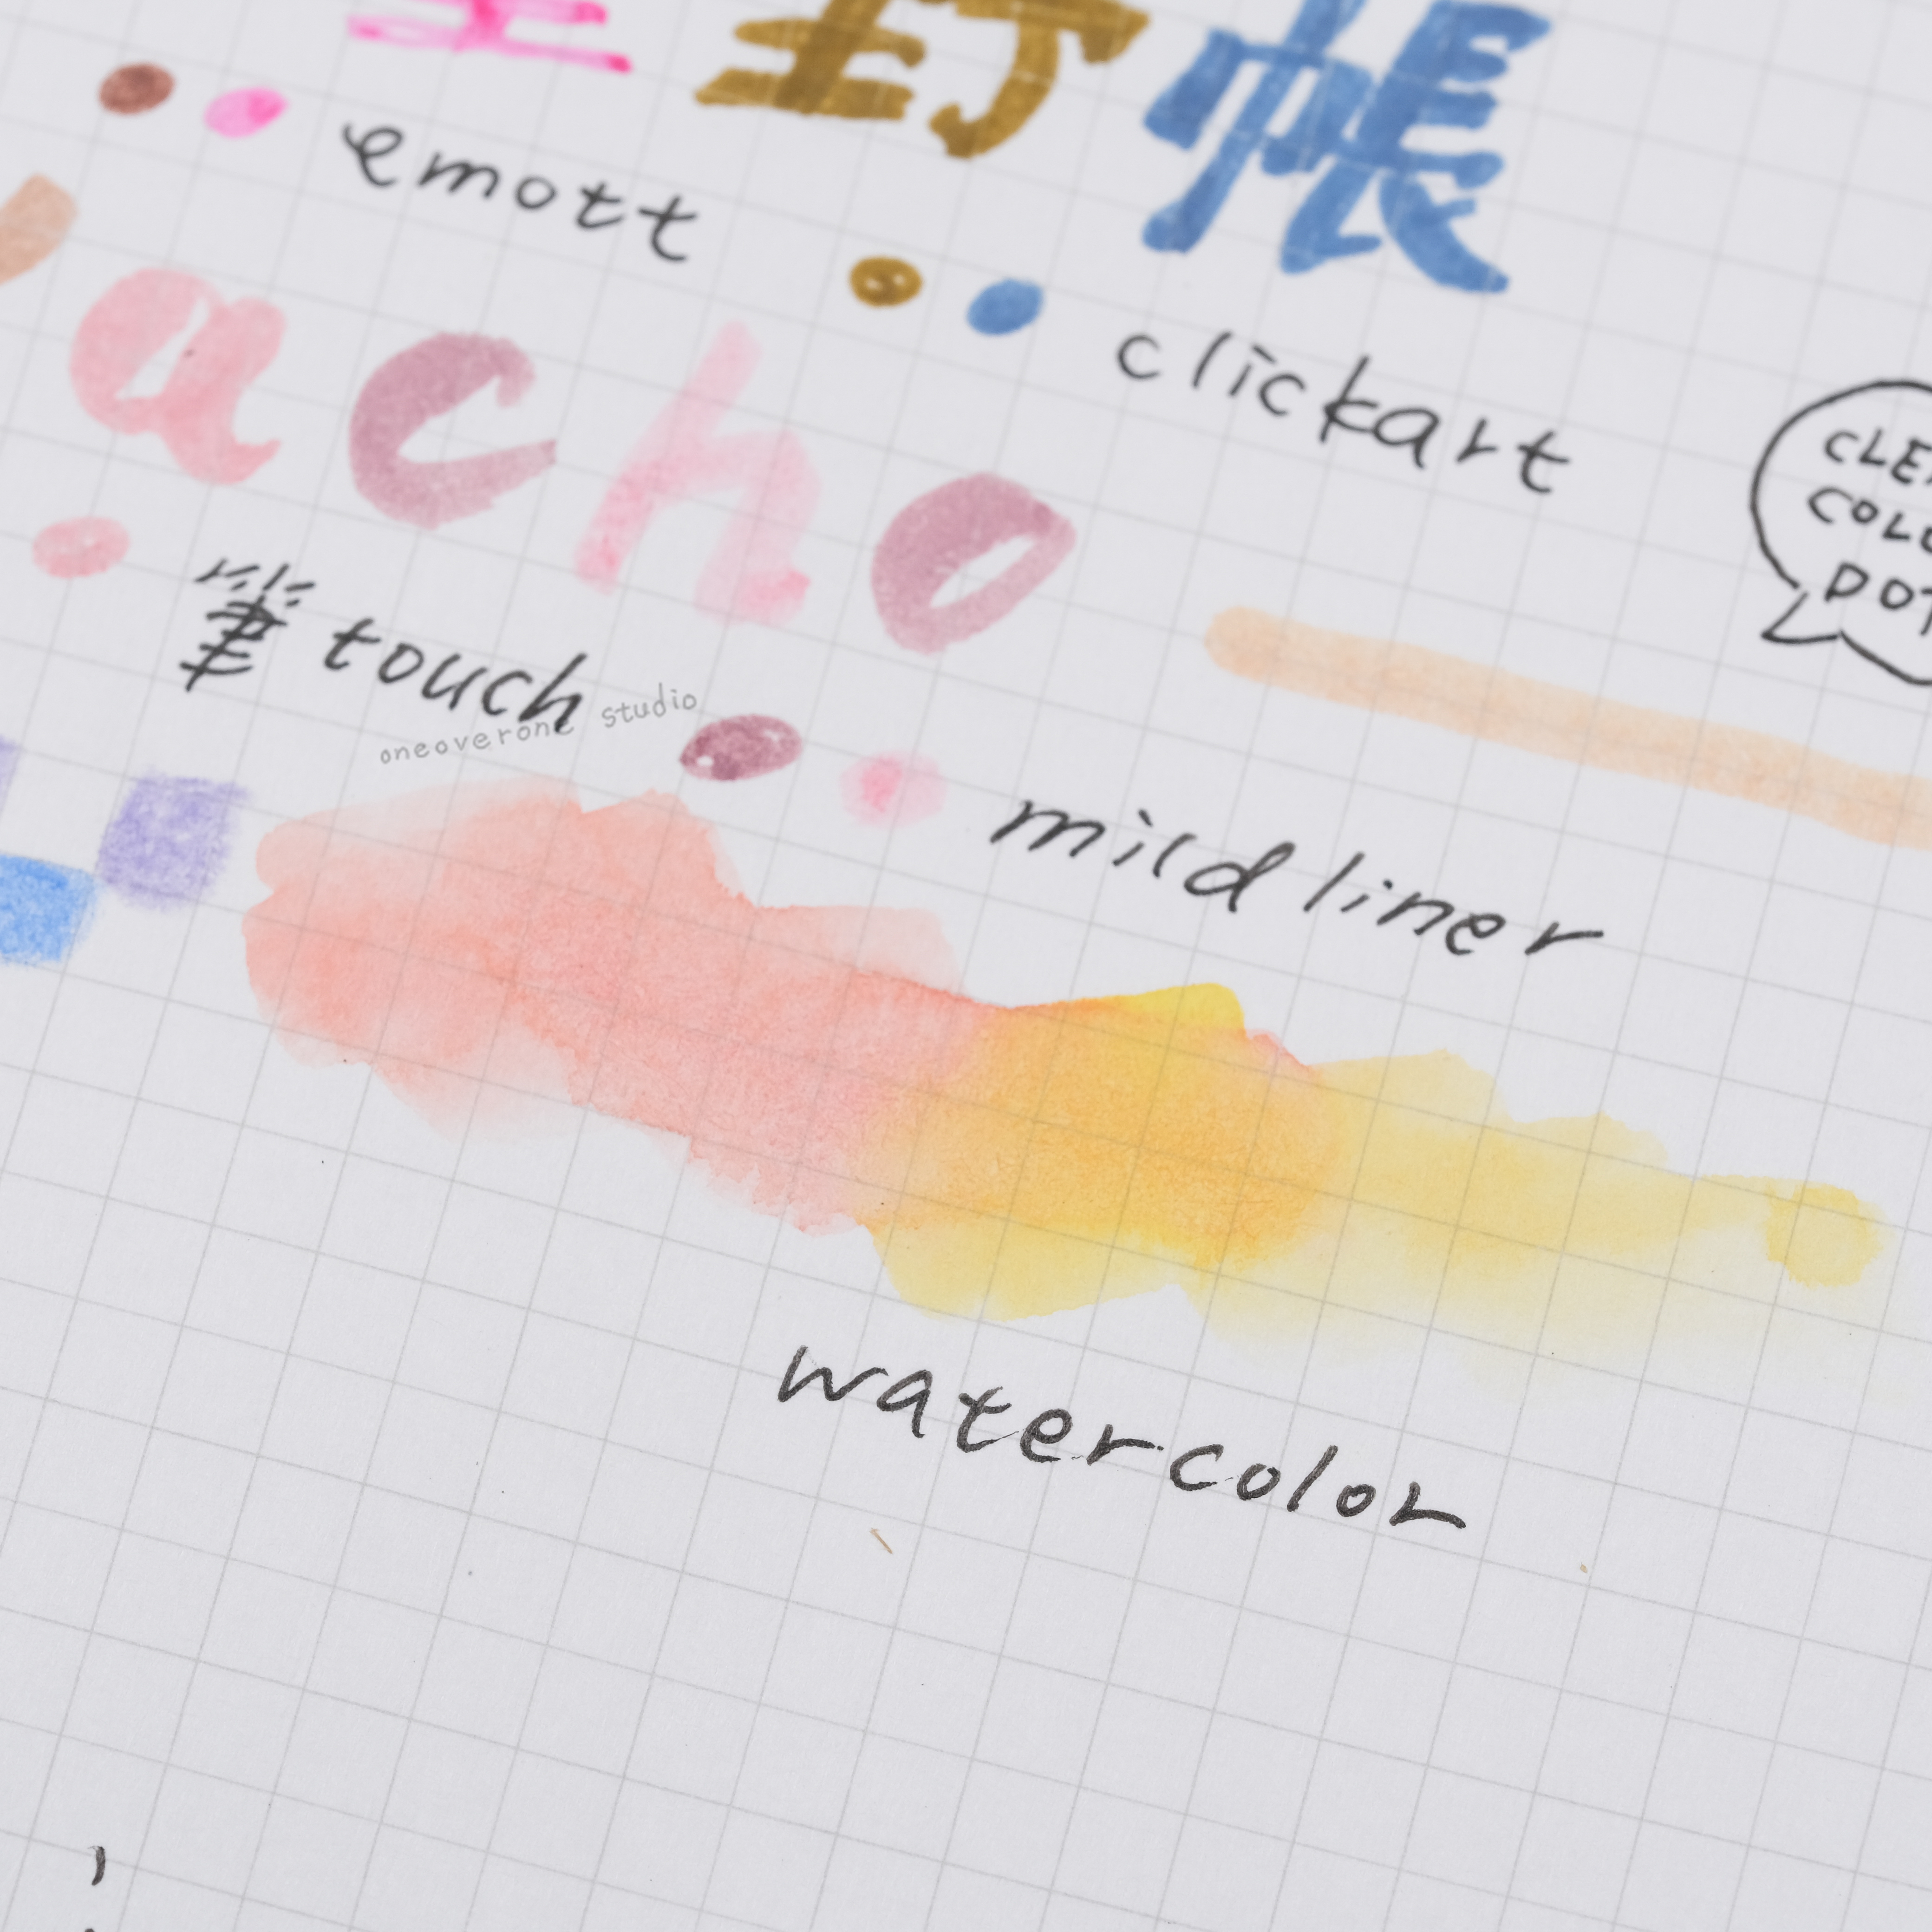 封帳
emott
clickart
acho
CLE
COLO
DOT
筆 touch
oneoverone studio
mildliner
watercolor